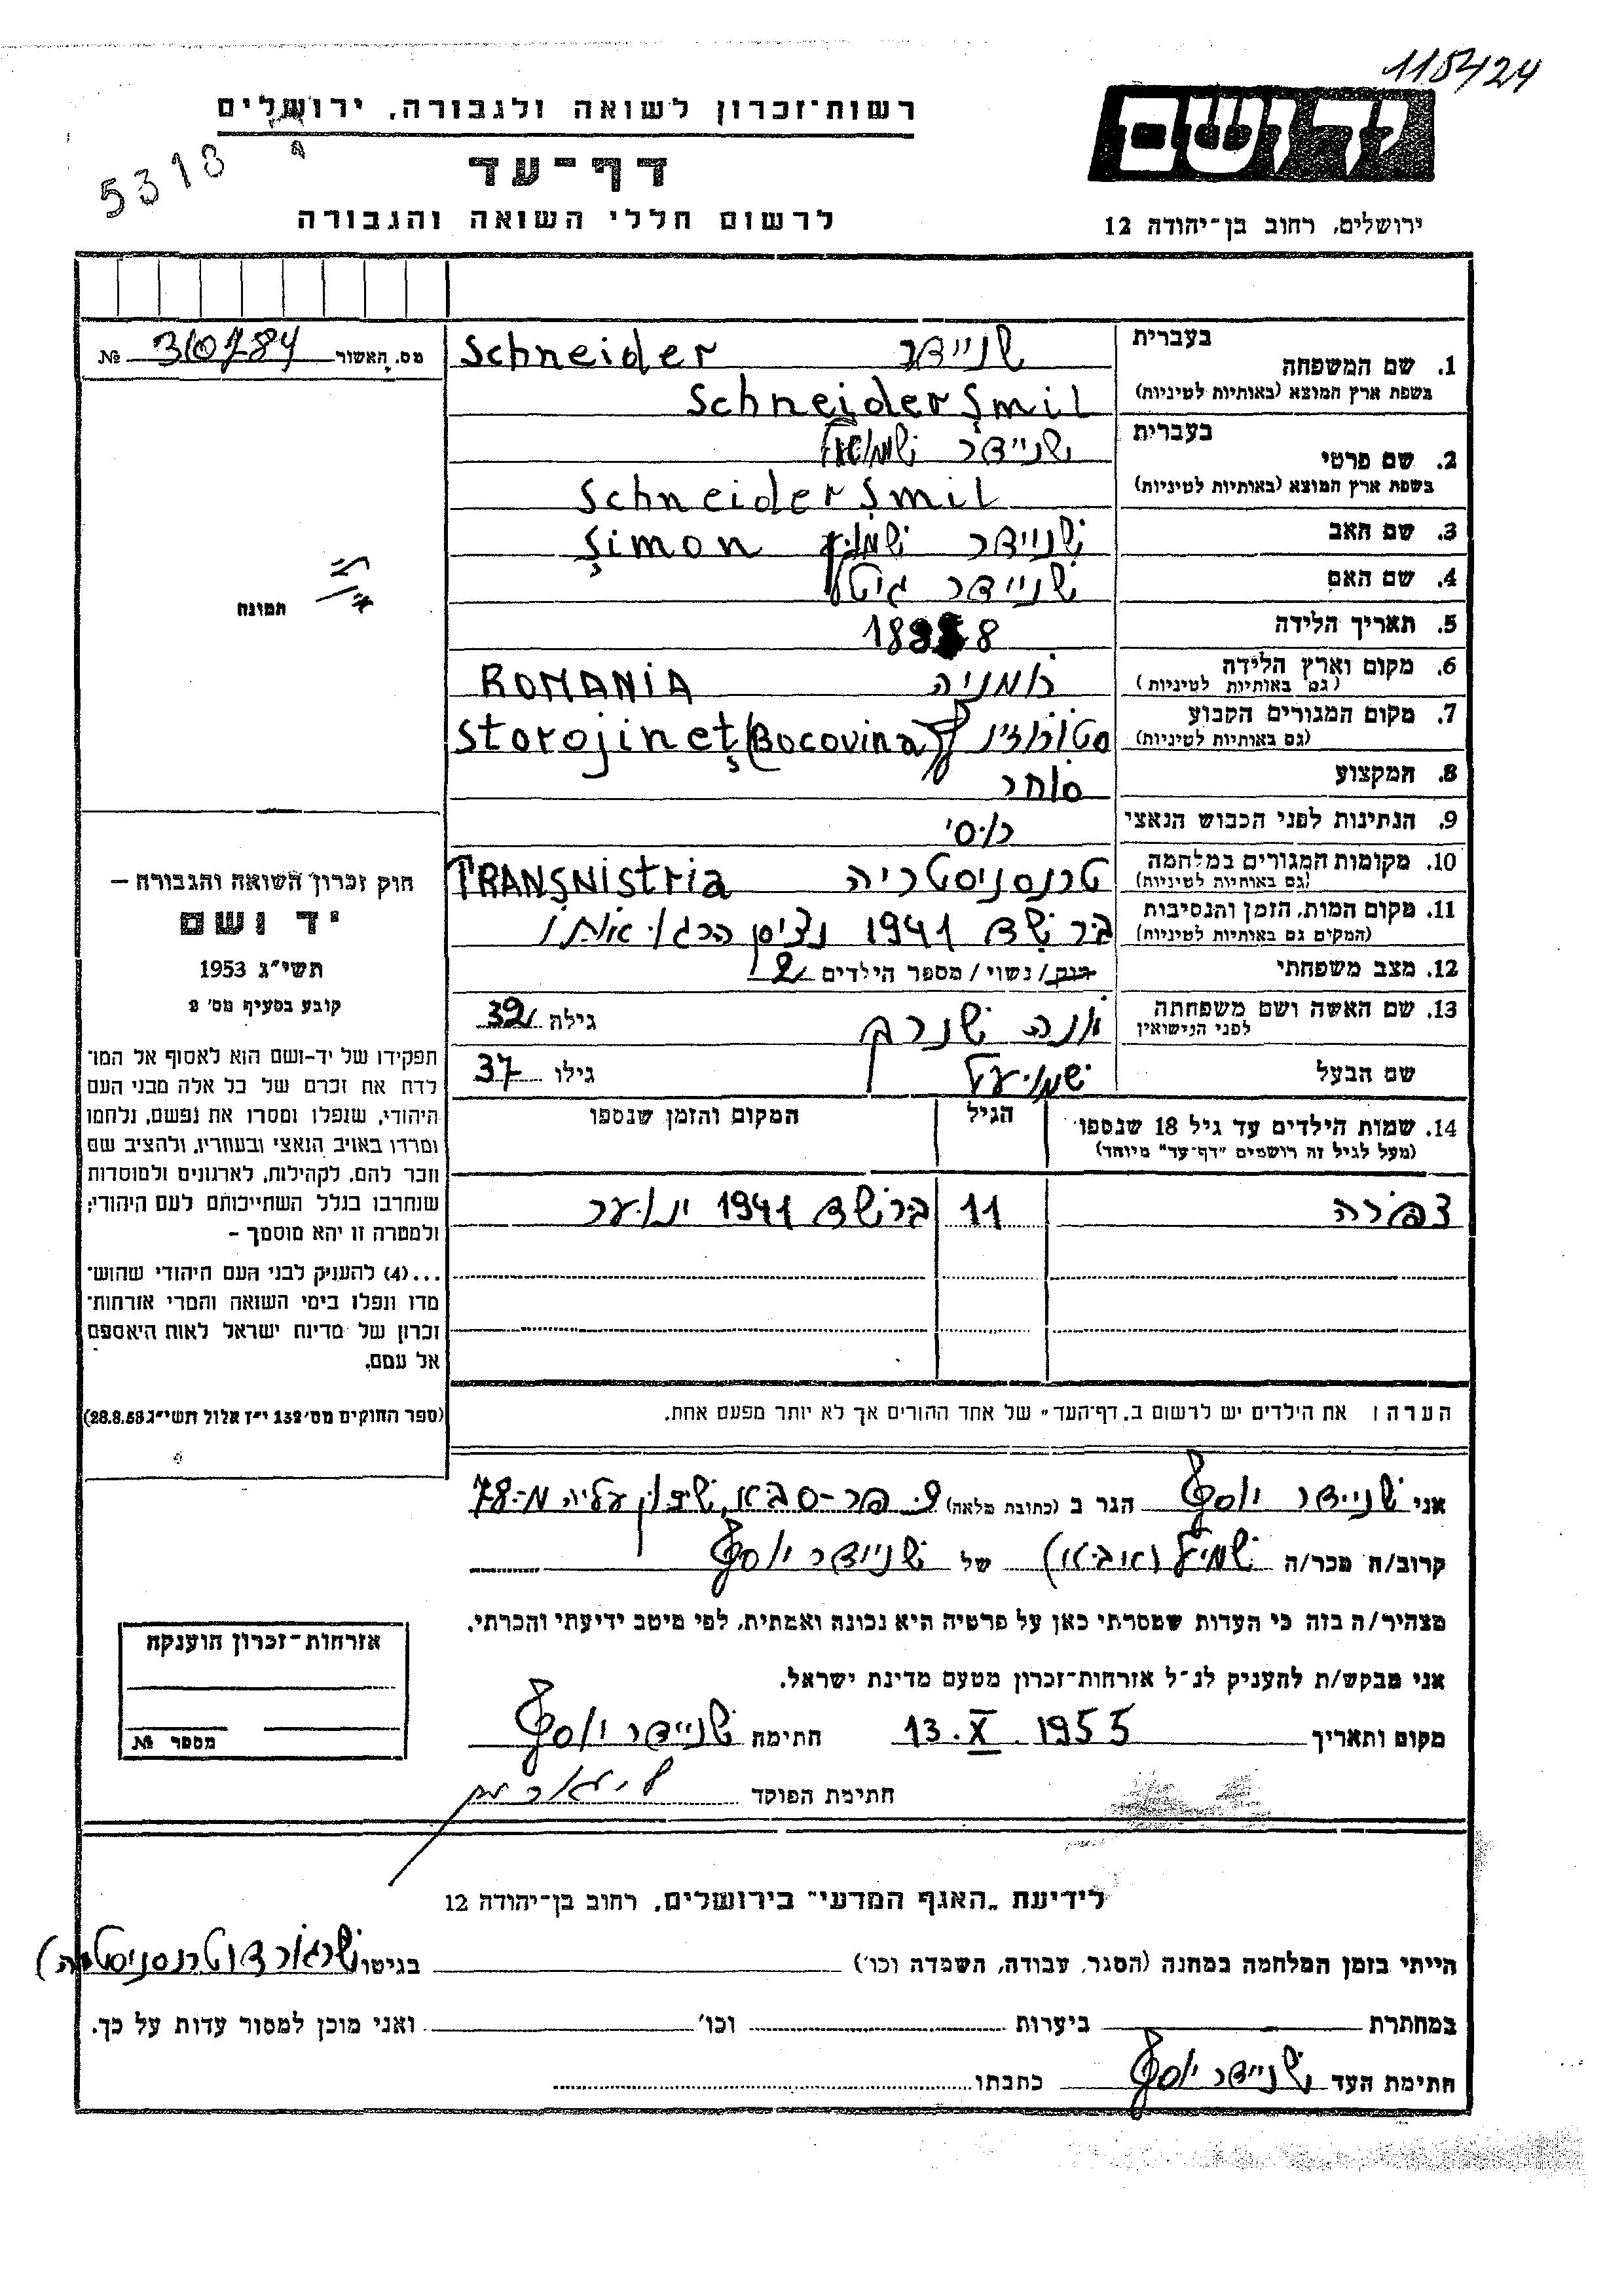 118424
רשות־זכרון לשואה ולגבורה, ירושלים
יד ושם
5313
דף־עד
לרשום חללי השואה והגבורה
ירושלים, רחוב בן־יהודה 12
מס. האשור 310784 №
1. שם המשפחה
בעברית שניידר Schneider
בשפת ארץ המוצא (באותיות לטיניות) Schneider Şmil
2. שם פרטי
בעברית שניידר שמואל
בשפת ארץ המוצא (באותיות לטיניות) Schneider Şmil
3. שם האב שניידר Şimon
4. שם האם שניידר גיטל
5. תאריך הלידה
6. מקום וארץ הלידה רומניה ROMANIA
(גם באותיות לטיניות)
7. מקום המגורים הקבוע Storojineţ (Bocovina)
(גם באותיות לטיניות)
8. המקצוע סוחר
9. הנתינות לפני הכבוש הנאצי
10. מקומות המגורים במלחמה טרנסניסטריה TRANSNistria
(גם באותיות לטיניות)
11. מקום המות, הזמן והנסיבות ברשד 1941 נציסן הרגו אותו
(המקום גם באותיות לטיניות)
12. מצב משפחתי רוק/נשוי/מספר הילדים 2
13. שם האשה ושם משפחתה
לפני הנישואין גילה 32
שם הבעל שמויעל גילו 37
14. שמות הילדים עד גיל 18 שנספו
(מעל לגיל זה רושמים "דף־עד" מיוחד)
הגיל
המקום והזמן שנספו
צפורה 11 ברשד 1941 ינוער
הערה: את הילדים יש לרשום ב„דף־העד" של אחד ההורים אך לא יותר מפעם אחת.
תמונה
חוק זכרון השואה והגבורה —
יד ושם
תשי"ג 1953
קובע בסעיף מס' 2
תפקידו של יד-ושם הוא לאסוף אל המו־
לדת את זכרם של כל אלה מבני העם
היהודי, שנפלו ומסרו את נפשם, נלחמו
ומרדו באויב הנאצי ובעוזריו, ולהציב שם
וזכר להם, לקהילות, לארגונים ולמוסדות
שנחרבו בגלל השתייכותם לעם היהודי;
ולמטרה זו יהא מוסמך –
...(4) להעניק לבני העם היהודי שהוש־
מדו ונפלו בימי השואה והמרי אזרחות־
זכרון של מדינת ישראל לאות היאספם
אל עמם.
(ספר החוקים מס' 132 י"ז אלול תשי"ג 28.8.53)
אני שניידר יוסף הגר ב (כתובת מלאה) כפר-סבא, שיכון עליה מ-78
קרוב/ה מכר/ה שמיל (אבא) של שניידר יוסף
מצהיר/ה בזה כי העדות שמסרתי כאן על פרטיה היא נכונה ואמתית, לפי מיטב ידיעתי והכרתי.
אני מבקש/ת להעניק לנ"ל אזרחות־זכרון מטעם מדינת ישראל.
מקום ותאריך 13.X.1955 חתימה שניידר יוסף
חתימת הפוקד
אזרחות־זכרון הוענקה
מספר №
לידיעת „האגף המדעי" בירושלים, רחוב בן־יהודה 12
הייתי בזמן המלחמה במחנה (הסגר, עבודה, השמדה וכו') בגיטו
במחתרת ביערות וכו' ואני מוכן למסור עדות על כך.
חתימת העד שניידר יוסף כתבתו